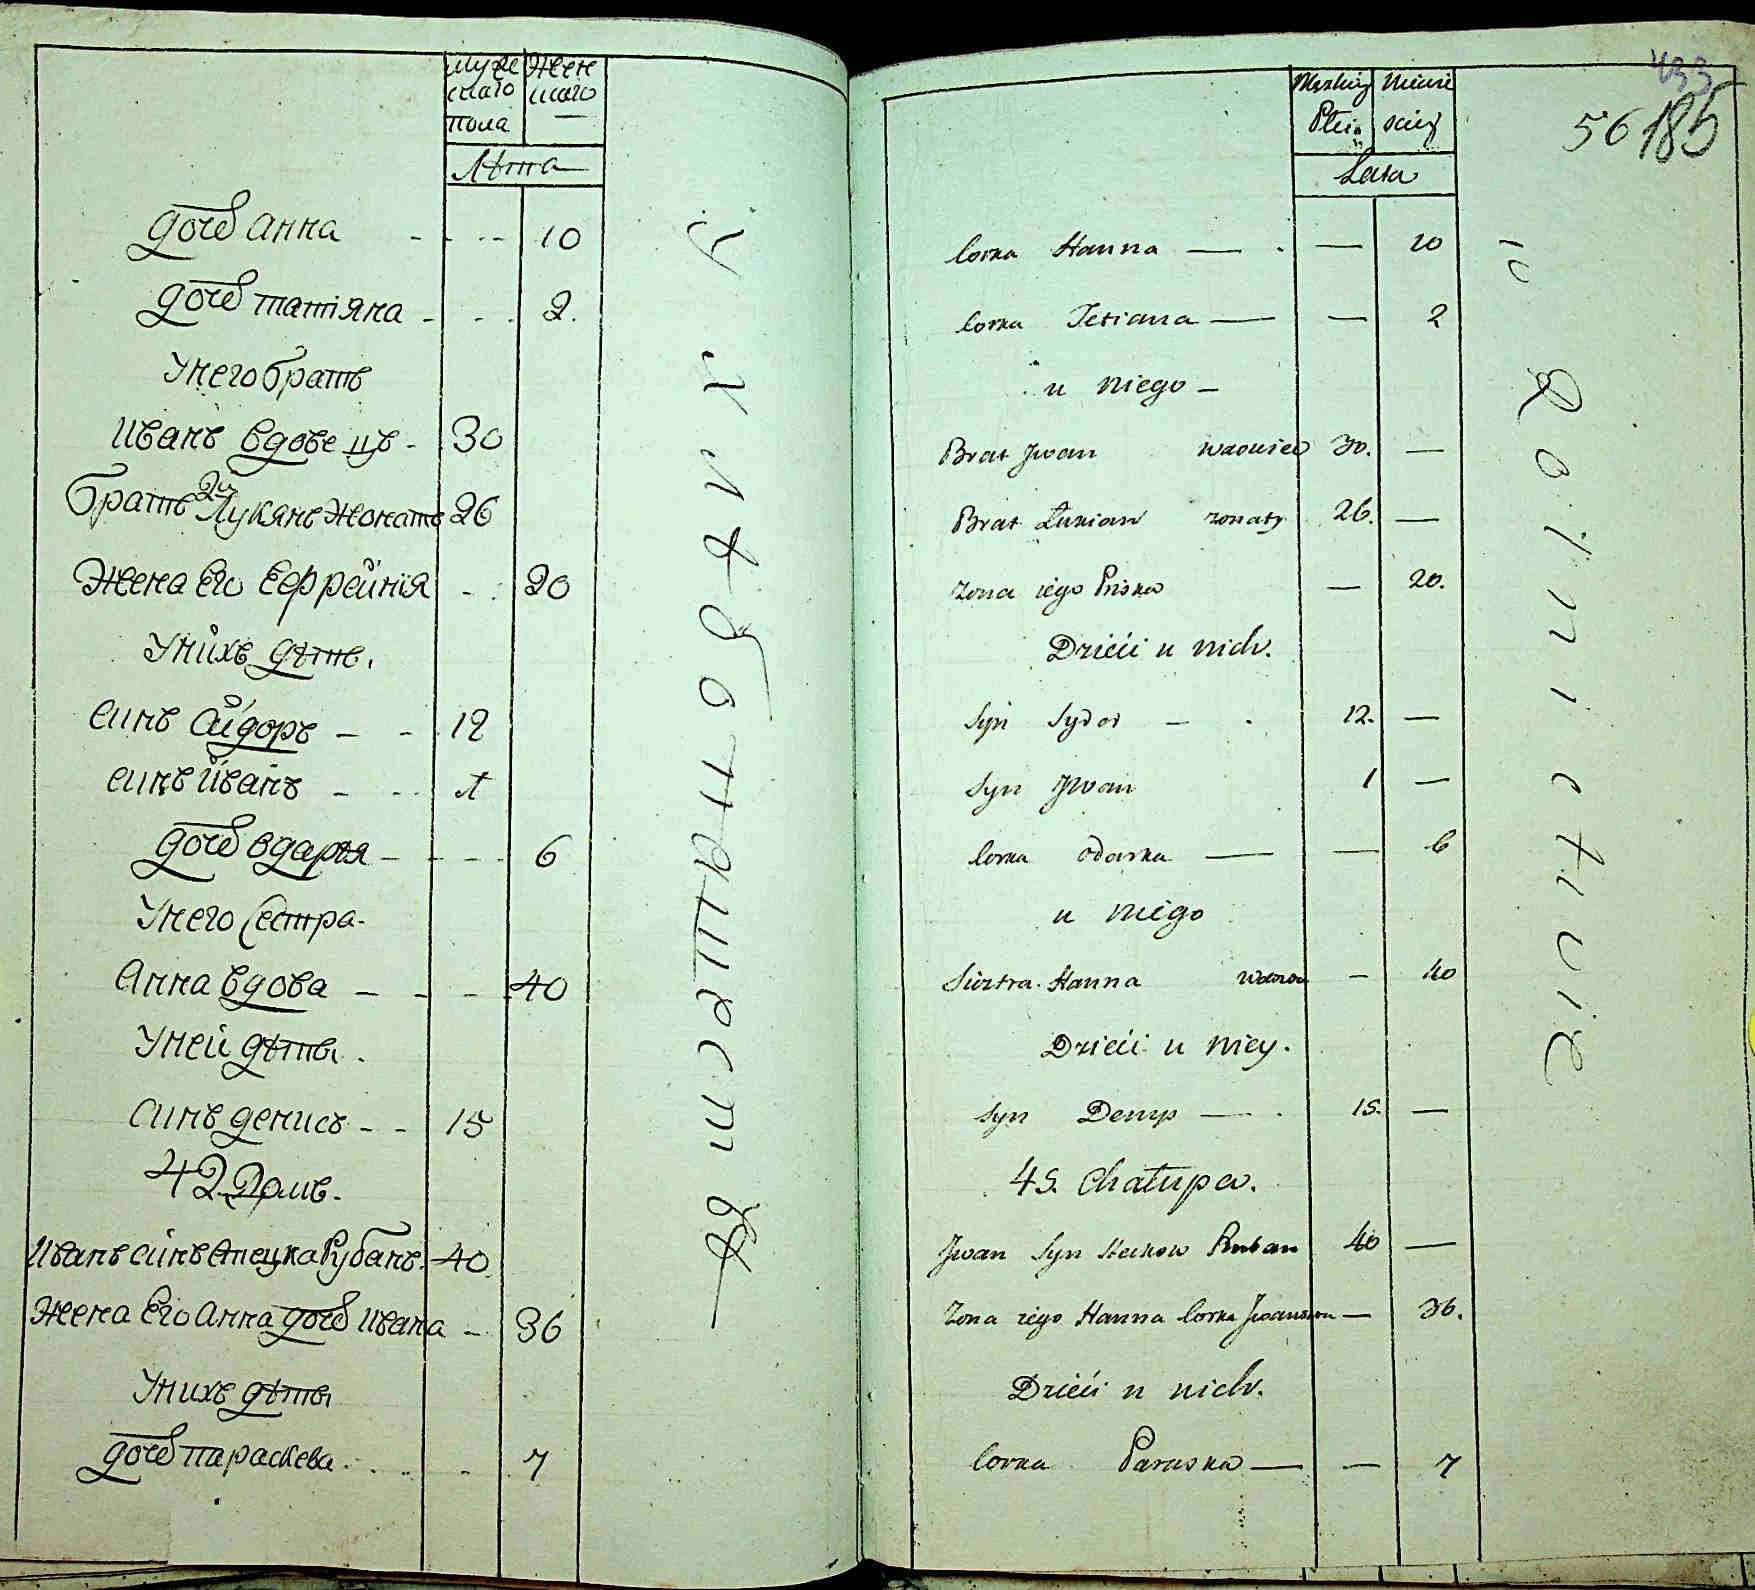 мужескаго пола
Женскаго
Лѣта
дочь Анна 10
дочь татіяна 2.
Унего братъ
Иванъ вдовецъ 30
братъ 2й Лукянъ Жонатъ 26
Жена Его Ефросинія 20
Унихъ дѣти.
Синъ Сидоръ 12
Синъ Иванъ 1
дочь одарія 6
Унего Сестра
Анна вдова 40
Уней дѣти.
Синъ денисъ 15
42 Домъ.
Иванъ синъ Стецка Рубанъ. 40
Жена Его Анна дочь Ивана 36
Унихъ дѣти
дочь параскева 7
56 185
433
Męzkiey Płci
Niewieściey
Lata
Corka Hanna — — 10
Corka Tetiana — — 2
u niego —
Brat Jwan wdowiec 30. —
Brat Łukian zonaty 26. —
Zona iego Priska — 20.
Dzieci u nich.
Syn Sydor — 12. —
Syn Jwan 1 —
Corka Odarka — — 6
u niego
Siostra Hanna wdowa — 40
Dzieci u niey.
Syn Denys — 15. —
45. Chałupa.
Jwan Syn Steckow Ruban 40 —
Zona iego Hanna Corka Jwanowa — 36.
Dzieci u nich.
Corka Paraska — — 7